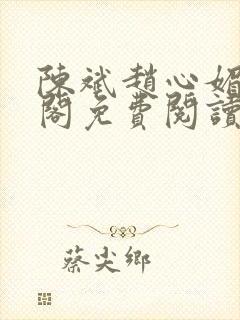 陳斌趙心媚
閣免費閱讀
蔡尖鄉